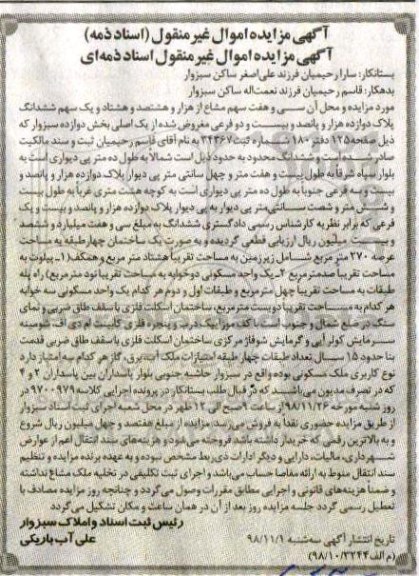 آگهی مزایده اموال غیر منقول (اسناد ذمه)
آگهی مزایده اموال غیر منقول اسناد ذمه‌ای
بستانکار: سارا رحیمیان فرزند علی‌اصغر ساکن سبزوار
بدهکار: قاسم رحیمیان فرزند نعمت‌اله ساکن سبزوار
مورد مزایده و محل آن سی و هفت سهم مشاع از هزار و هشتصد و هشتاد و یک سهم ششدانگ
پلاک دوازده هزار و پانصد و بیست و دو فرعی مفروض شده از یک اصلی بخش دوازده سبزوار که
ذیل صفحه ۱۲۵ دفتر ۱۸۰ شماره ثبت ۳۴۴۶۷ به نام آقای قاسم رحیمیان ثبت و سند مالکیت
صادر شده است و ششدانگ محدود به حدود ذیل است شمالاً به طول ده متر پی دیواری است به
بلوار سپاه شرقاً به طول بیست و هفت متر و چهل سانتی متر پی دیوار پلاک دوازده هزار و پانصد و
بیست و سه فرعی جنوباً به طول ده متر پی دیواری است به کوچه هشت متری غرباً به طول بیست
و شش متر و شصت سانتی‌متر پی دیوار به پی دیوار پلاک دوازده هزار و پانصد و بیست و یک
فرعی که برابر نظریه کارشناس رسمی دادگستری ششدانگ به مبلغ سی و هفت میلیارد و ششصد
و بیست میلیون ریال ارزیابی قطعی گردیده و به صورت یک ساختمان چهار طبقه به مساحت
عرصه ۲۷۰ متر مربع شامل زیرزمین به مساحت تقریباً هشتاد متر مربع و همکف (۱ـ پیلوت به
مساحت تقریبا صد متر مربع ۲ـ یک واحد مسکونی دو خوابه به مساحت تقریبا نود متر مربع) راه پله
طبقات به مساحت تقریبا چهل متر مربع و طبقات اول و دوم هر کدام یک واحد مسکونی سه خوابه
هر کدام به مساحت تقریبا دویست متر مربع، ساختمان اسکلت فلزی با سقف طاق ضربی و نمای
سنگ در ضلع شمال و جنوب است با کف موزاییک درب و پنجره فلزی کابینت ام دی اف شومینه
سرمایش کولر آبی و گرمایش شوفاژ مرکزی ساختمان اسکلت فلزی با سقف طاق ضربی قدمت
بنا حدود ۱۵ سال تعداد طبقات چهار طبقه امتیازات ملک آب، برق، گاز هر کدام سه امتیاز دارد
نوع کاربری ملک مسکونی بوده واقع در سبزوار حاشیه جنوبی بلوار پاسداران بین پاسداران ۲ و ۴
که در تصرف مدیون می‌باشید که در قبال طلب بستانکار در پرونده اجرایی کلاسه ۹۷۰۰۹۷۹ در
روز شنبه مورخه ۹۸/۱۱/۲۶ از ساعت ۹ صبح الی ۱۲ ظهر در محل شعبه اجرای ثبت اسناد سبزوار
از طریق مزایده حضوری نقدا به فروش می‌رسد. مزایده از مبلغ هفتصد و چهل میلیون ریال شروع
و به بالاترین رقمی که خریدار داشته باشد فروخته می‌شود و هزینه‌های سند انتقال اعم از عوارض
شهرداری، مالیات، دارایی و دیگر ادارات ذی‌ربط مشخص نبوده و به عهده برنده مزایده و تنظیم
سند انتقال منوط به ارائه مفاصا حساب می‌باشد و اجرای ثبت تکلیفی در تخلیه ملک مشاع نداشته
و ضمناً هزینه‌های قانونی و اجرایی مطابق مقررات وصول می‌گردد و چنانچه روز مزایده مصادف با
تعطیل رسمی گردد جلسه مزایده روز بعد از آن در همان ساعت و مکان تشکیل می‌گردد
رئیس ثبت اسناد و املاک سبزوار
تاریخ انتشار آگهی سه‌شنبه ۹۸/۱۱/۱
علی آب باریکی
(م الف ۹۸/۱۰/۳۲۴۴)